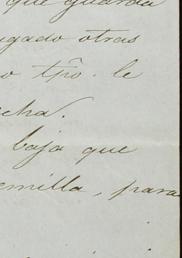 que guarda
gado otras
o tpô. le
cha.
baja que
emilla, para